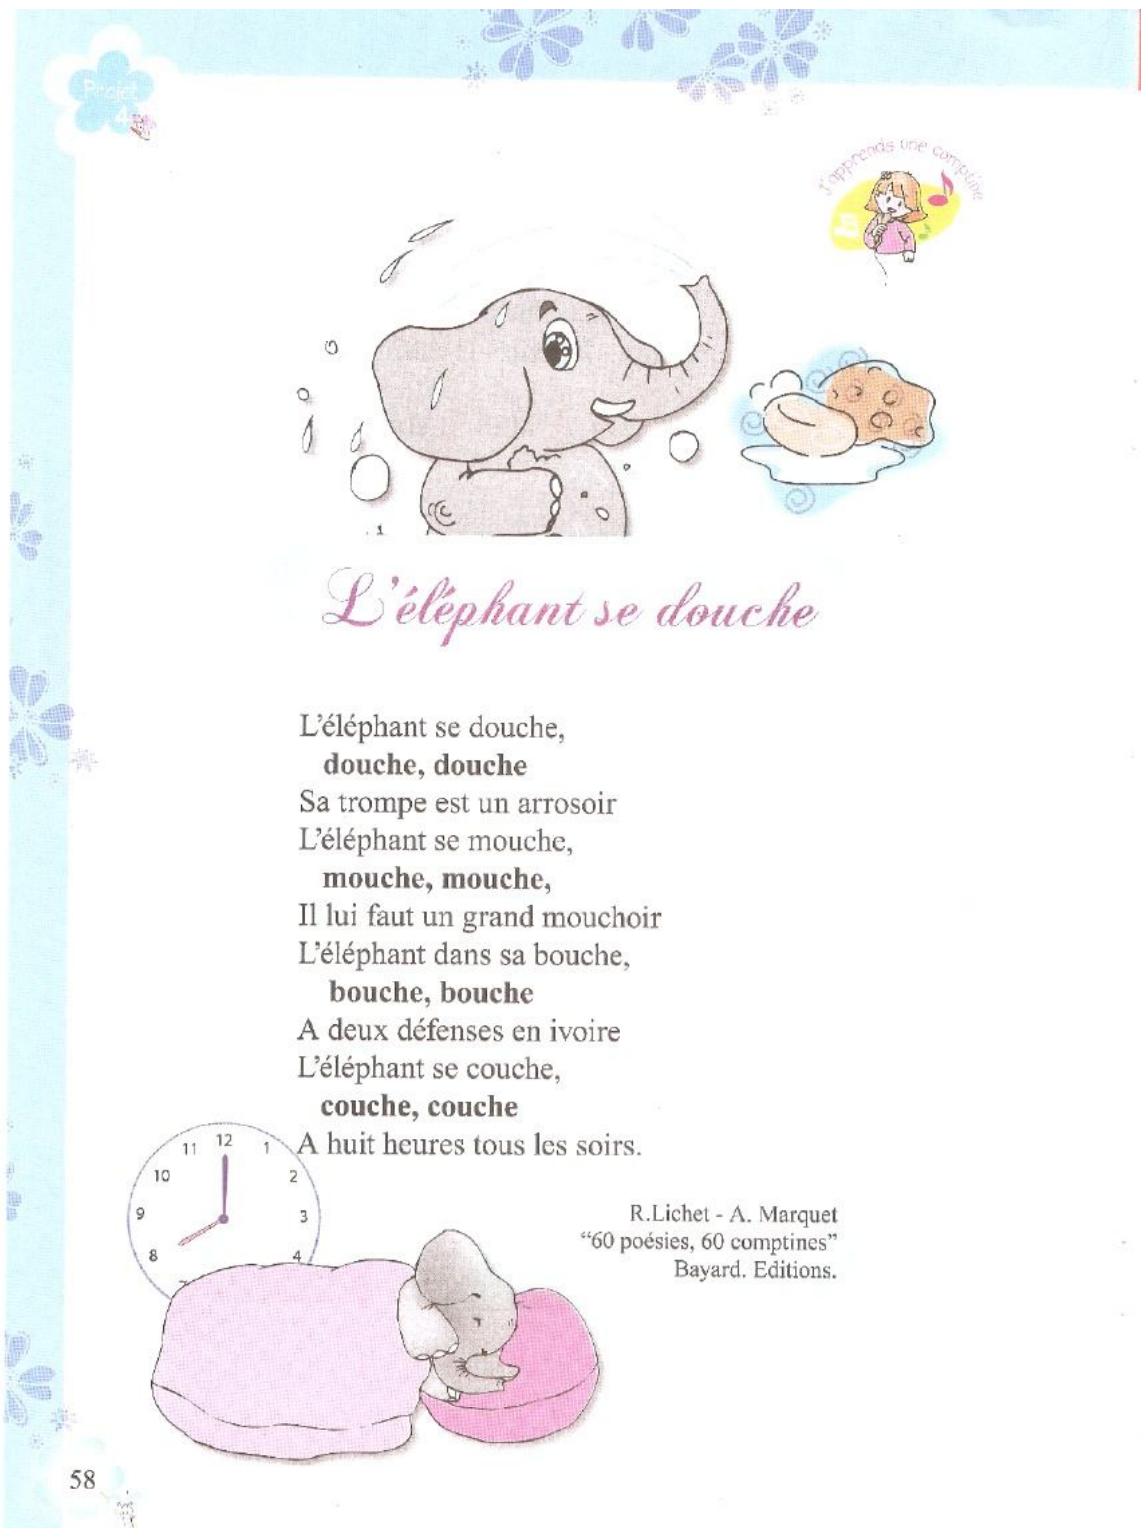 Projet
4
J'apprends une comptine
L'éléphant se douche
L'éléphant se douche,
douche, douche
Sa trompe est un arrosoir
L'éléphant se mouche,
mouche, mouche,
Il lui faut un grand mouchoir
L'éléphant dans sa bouche,
bouche, bouche
A deux défenses en ivoire
L'éléphant se couche,
couche, couche
A huit heures tous les soirs.
11 12 1
10 2
9 3
8 4
R.Lichet - A. Marquet
“60 poésies, 60 comptines”
Bayard. Editions.
58